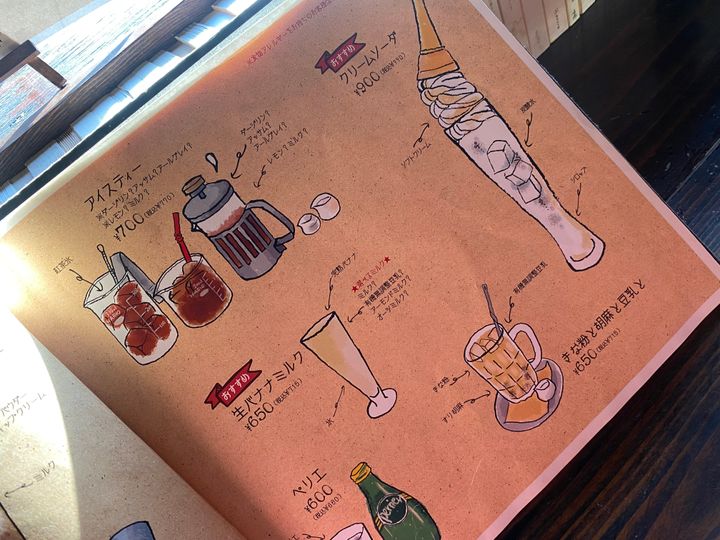 おすすめ
クリームソーダ
¥900(税込¥990)
炭酸水
ソフトクリーム
シロップ
ダージリン?
アッサム?
アールグレイ?
レモン?ミルク?
アイスティー
※ダージリン?アッサム?アールグレイ?
※レモン?ミルク?
¥700(税込¥770)
紅茶氷
完熟バナナ
★選べるミルク★
ミルク?
有機無調整豆乳?
アーモンドミルク?
オーツミルク?
おすすめ
生バナナミルク
¥650(税込¥715)
氷
有機無調整豆乳
きな粉
すり胡麻
きな粉と胡麻と豆乳と
¥650(税込¥715)
ペリエ
¥600
(税込¥660)
perrier
パウダー
ップクリーム
ミルク